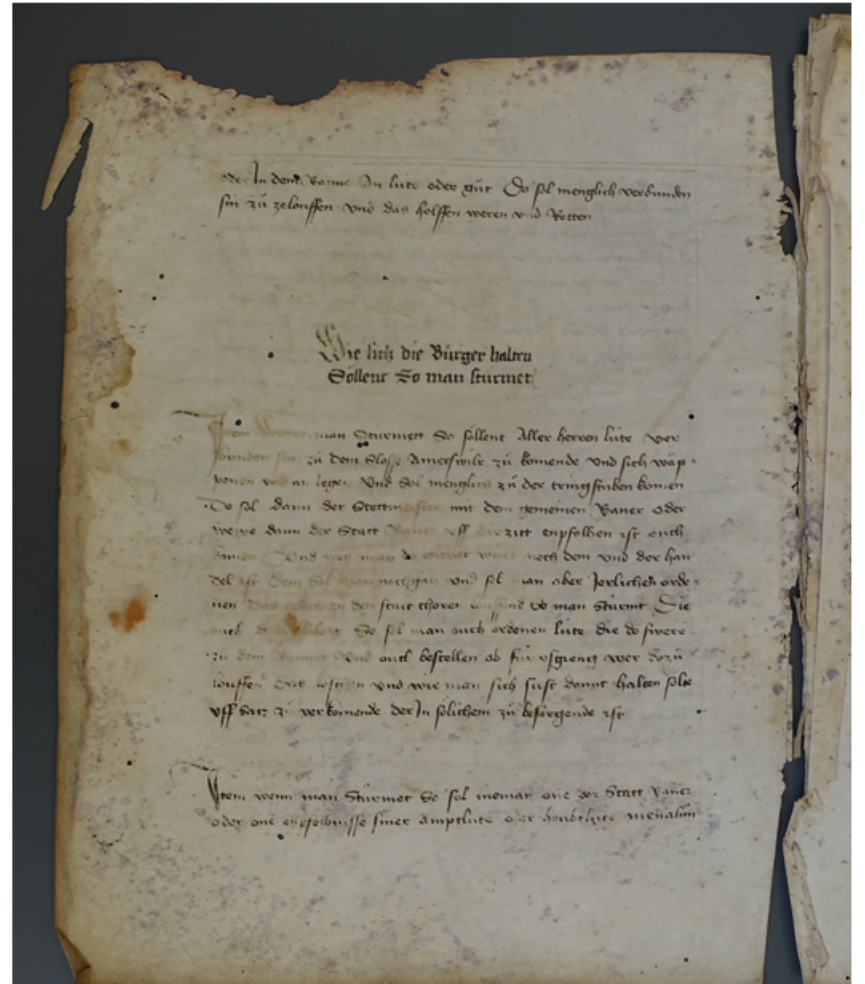 oder In dem Banne An lute oder gůt Do sol menglich verbunden
sin zů zelouffen vnd das helffen weren vnd Retten
Wie sich die Bürger halten
Sollent So man stürmet
Item Wenne man Sturmett So sollent Aller herren lüte ver
bunden sin zů dem Slosse Amerswilr zů komende vnd sich wäp
penen vnd an legen Vnd Sol menglich zů der komen
Do sol dann der Stettmeister mit dem gemeinen Baner oder
weme dann der Statt Baner vff die zitt enpfolhen ist ouch
komen Vnd man noch dem vnd der han
del ist Dem Sol man nochgan vnd sol man aber Jerlichen orde
nen zu den thoren So man stürmt Die
So sol man ouch ordenen lüte die do swere
zu dem Banner Vnd ouch bestellen ob für vsgieng wer dozů
louffen vnd wie man sich sust donnt halten solte
vff Satz zů verkomende der In solichem zů besorgende ist
Item wenn man Stürmet So sol nieman one der Statt Baner
oder one siner Amptlüte oder houbtlüte